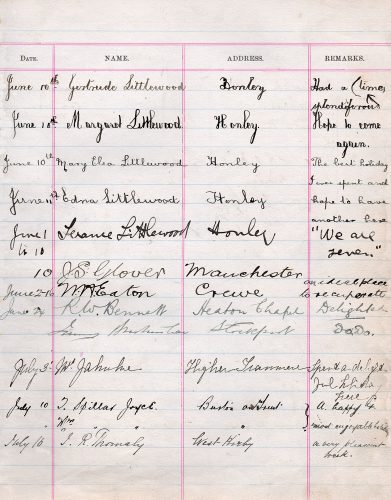 DATE. NAME. ADDRESS. REMARKS.
June 10th Gertrude Littlewood Honley Had a (time
splendiferous
June 10th Margaret Littlewood. Honley. Hope to come
again.
June 10th Mary Elsa Littlewood Honley The best holiday
I ever spent and
June Edna Littlewood Honley hope to have
another here
June 1 Littlewood Honley "We are
to 10 seven"
10 J.S. Glover Manchester an ideal place
June Eaton Crewe to recuperate
June R.W. Bennett Heaton Chapel Delighted
Stockport Do Do.
July Jahnke Higher Tranmere Spent a
here
July 10 T. Spillar Joyce Burton on Trent A happy &
" Mrs " " most enjoyable
July 16 J. R. Thornaby West Kirby a very pleasant
week.